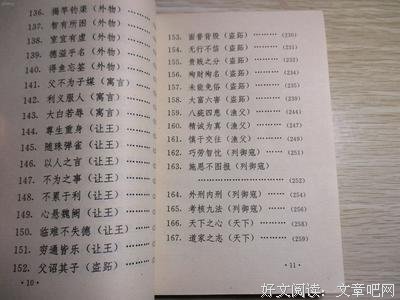 136. 揭竿钓渠(外物)
137. 智有所困(外物)
138. 室宜有虚(外物)
139. 德溢乎名(外物)
140. 得鱼忘筌(外物)
141. 父不为子媒(寓言)
142. 利义服人(寓言)
143. 大白若辱(寓言)
144. 尊生重身(让王)
145. 随珠弹雀(让王)
146. 以人之言(让王)
147. 不为之事(让王)
148. 不累于利(让王)
149. 心悬魏阙(让王)
150. 临难不失德(让王)
151. 穷通皆乐(让王)
152. 父诏其子(盗跖)
• 10 •
153. 面誉背毁(盗跖)………(230)
154. 无行不信(盗跖)………(231)
155. 贵贱之分(盗跖)………(232)
156. 殉财殉名(盗跖)………(234)
157. 未能免俗(盗跖)………(235)
158. 大富六害(盗跖)………(236)
159. 八疵四患(渔父)………(238)
160. 精诚为真(渔父)………(241)
161. 慎于交往(渔父)………(242)
162. 巧劳智忧(列御寇)………(251)
163. 施恩不图报(列御寇)
………(252)
164. 外刑内刑(列御寇)………(253)
165. 考核九法(列御寇)………(254)
166. 天下之心(天下)………(256)
167. 道家之志(天下)………(259)
• 11 •
好文阅读:文章吧网